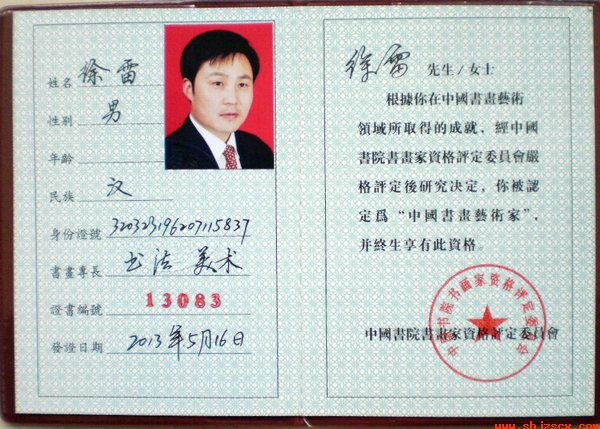 姓名 徐雷
性別 男
年齡
民族 汉
身份證號 320323196207115837
書畫專長 书法 美术
證書編號 13083
發證日期 2013年5月16日
徐雷 先生/女士
根據你在中國書畫藝術
領域所取得的成就，經中國
書院書畫家資格評定委員會嚴
格評定後研究決定，你被認
定爲“中國書畫藝術家”，
并終生享有此資格。
中国书院书画家资格评定委员会
中國書院書畫家資格評定委員會
www.shjzscx.com